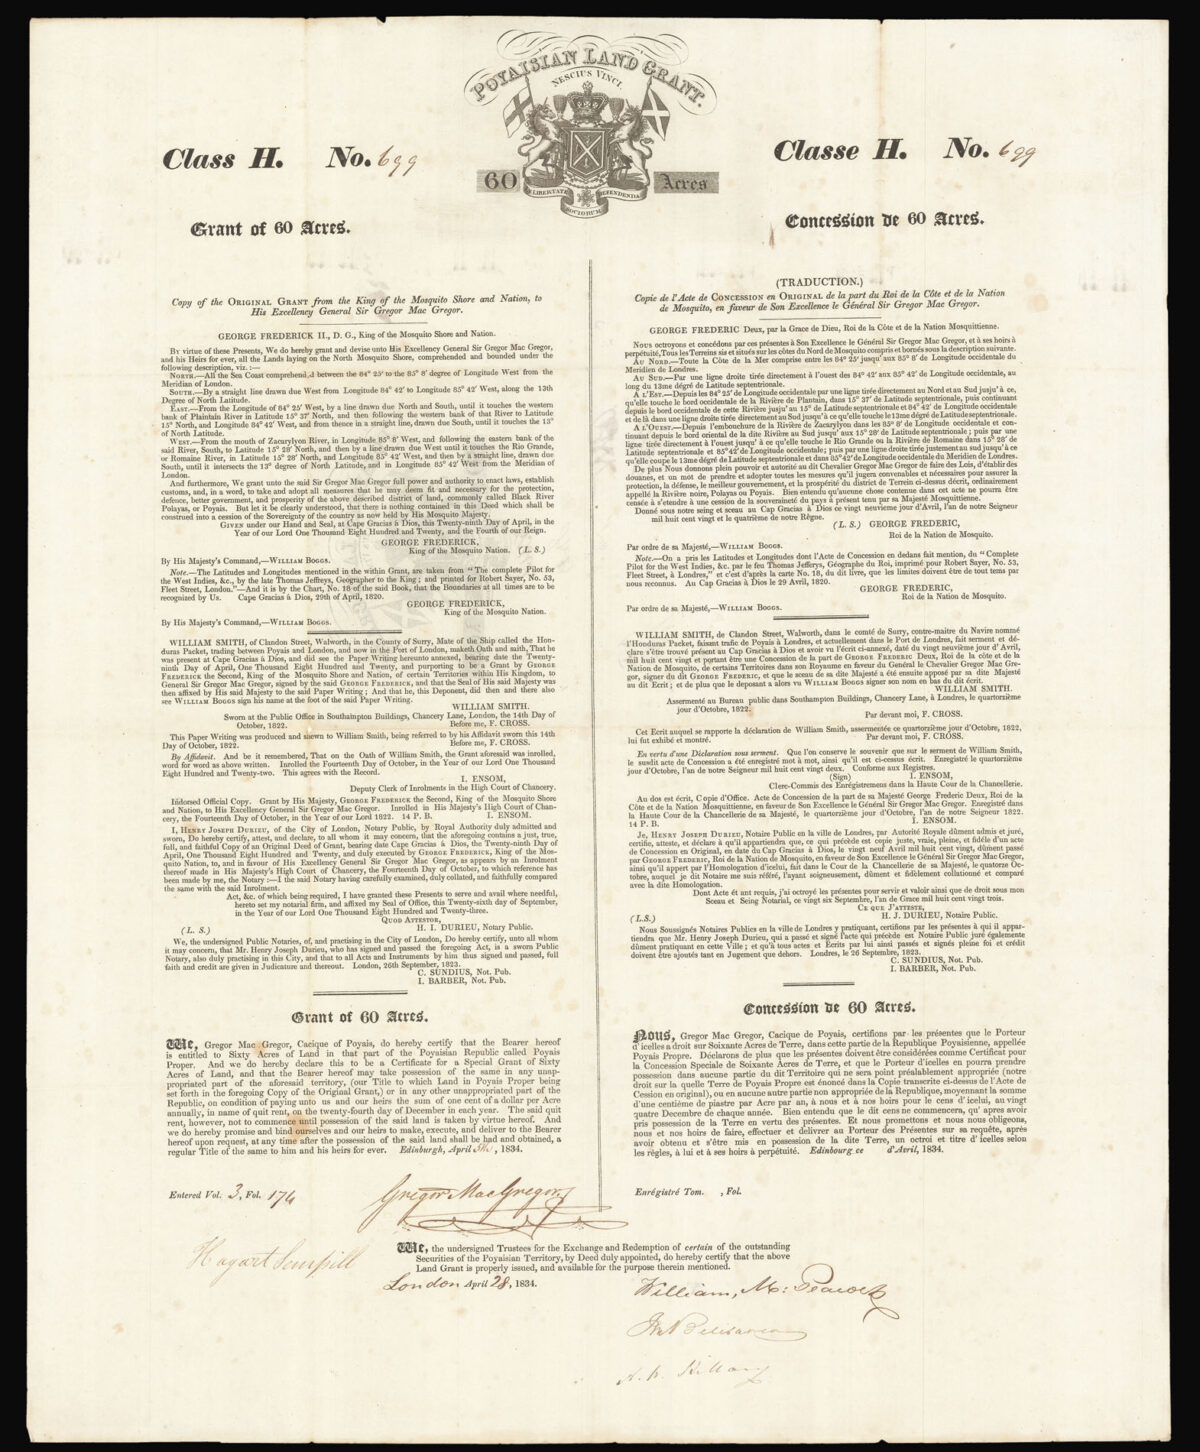 POYAISIAN LAND GRANT.
NESCIUS VINCI.
60 Acres
LIBERTATE DEFENDENDA
SOCIORUM
Class H. No. 699
Grant of 60 Acres.
Copy of the ORIGINAL GRANT from the King of the Mosquito Shore and Nation, to
His Excellency General Sir Gregor Mac Gregor.
GEORGE FREDERICK II., D. G., King of the Mosquito Shore and Nation.
BY virtue of these Presents, We do hereby grant and devise unto His Excellency General Sir Gregor Mac Gregor,
and his Heirs for ever, all the Lands laying on the North Mosquito Shore, comprehended and bounded under the
following description, viz. :—
NORTH.—All the Sea Coast comprehend.d between the 84° 25' to the 85° 8' degree of Longitude West from the
Meridian of London.
SOUTH.—By a straight line drawn due West from Longitude 84° 42' to Longitude 85° 42' West, along the 13th
Degree of North Latitude.
EAST.—From the Longitude of 84° 25' West, by a line drawn due North and South, until it touches the western
bank of Plaintain River in Latitude 15° 37' North, and then following the western bank of that River to Latitude
15° North, and Longitude 84° 42' West, and from thence in a straight line, drawn due South, until it touches the 13°
of North Latitude.
WEST.—From the mouth of Zacarylyon River, in Longitude 85° 8' West, and following the eastern bank of the
said River, South, to Latitude 15° 28' North, and then by a line drawn due West until it touches the Rio Grande,
or Romaine River, in Latitude 15° 28' North, and Longitude 85° 42' West, and then by a straight line, drawn due
South, until it intersects the 13° degree of North Latitude, and in Longitude 85° 42' West from the Meridian of
London.
And furthermore, We grant unto the said Sir Gregor Mac Gregor full power and authority to enact laws, establish
customs, and, in a word, to take and adopt all measures that he may deem fit and necessary for the protection,
defence, better government, and prosperity of the above described district of land, commonly called Black River
Polayas, or Poyais. But let it be clearly understood, that there is nothing contained in this Deed which shall be
construed into a cession of the Sovereignty of the country as now held by His Mosquito Majesty.
GIVEN under our Hand and Seal, at Cape Gracias à Dios, this Twenty-ninth Day of April, in the
Year of our Lord One Thousand Eight Hundred and Twenty, and the Fourth of our Reign.
GEORGE FREDERICK,
King of the Mosquito Nation. (L. S.)
By His Majesty's Command,—WILLIAM BOGGS.
Note.—The Latitudes and Longitudes mentioned in the within Grant, are taken from "The complete Pilot for
the West Indies, &c., by the late Thomas Jeffreys, Geographer to the King; and printed for Robert Sayer, No. 53,
Fleet Street, London."—And it is by the Chart, No. 18 of the said Book, that the Boundaries at all times are to be
recognized by Us. Cape Gracias à Dios, 29th of April, 1820.
GEORGE FREDERICK,
King of the Mosquito Nation.
By His Majesty's Command,—WILLIAM BOGGS.
WILLIAM SMITH, of Clandon Street, Walworth, in the County of Surry, Mate of the Ship called the Hon-
duras Packet, trading between Poyais and London, and now in the Port of London, maketh Oath and saith, That he
was present at Cape Gracias à Dios, and did see the Paper Writing hereunto annexed, bearing date the Twenty-
ninth Day of April, One Thousand Eight Hundred and Twenty, and purporting to be a Grant by GEORGE
FREDERICK the Second, King of the Mosquito Shore and Nation, of certain Territories within His Kingdom, to
General Sir Gregor Mac Gregor, signed by the said GEORGE FREDERICK, and that the Seal of His said Majesty was
then affixed by His said Majesty to the said Paper Writing; And that he, this Deponent, did then and there also
see WILLIAM BOGGS sign his name at the foot of the said Paper Writing.
WILLIAM SMITH.
Sworn at the Public Office in Southampton Buildings, Chancery Lane, London, the 14th Day of
October, 1822. Before me, F. CROSS.
This Paper Writing was produced and shewn to William Smith, being referred to by his Affidavit sworn this 14th
Day of October, 1822. Before me, F. CROSS.
By Affidavit. And be it remembered, That on the Oath of William Smith, the Grant aforesaid was inrolled,
word for word as above written. Inrolled the Fourteenth Day of October, in the Year of our Lord One Thousand
Eight Hundred and Twenty-two. This agrees with the Record.
I. ENSOM,
Deputy Clerk of Inrolments in the High Court of Chancery.
Indorsed Official Copy. Grant by His Majesty, GEORGE FREDERICK the Second, King of the Mosquito Shore
and Nation, to His Excellency General Sir Gregor Mac Gregor. Inrolled in His Majesty's High Court of Chan-
cery, the Fourteenth Day of October, in the Year of our Lord 1822. 14 P. B. I. ENSOM.
I, HENRY JOSEPH DURIEU, of the City of London, Notary Public, by Royal Authority duly admitted and
sworn, Do hereby certify, attest, and declare, to all whom it may concern, that the aforegoing contains a just, true,
full, and faithful Copy of an Original Deed of Grant, bearing date Cape Gracias à Dios, the Twenty-ninth Day of
April, One Thousand Eight Hundred and Twenty, and duly executed by GEORGE FREDERICK, King of the Mos-
quito Nation, to, and in favour of His Excellency General Sir Gregor Mac Gregor, as appears by an Inrolment
thereof made in His Majesty's High Court of Chancery, the Fourteenth Day of October, to which reference has
been made by me, the Notary :—I the said Notary having carefully examined, duly collated, and faithfully compared
the same with the said Inrolment.
Act, &c. of which being required, I have granted these Presents to serve and avail where needful,
hereto set my notarial firm, and affixed my Seal of Office, this Twenty-sixth day of September,
in the Year of our Lord One Thousand Eight Hundred and Twenty-three.
QUOD ATTESTOR,
(L. S.) H. I. DURIEU, Notary Public.
We, the undersigned Public Notaries, of, and practising in the City of London, Do hereby certify, unto all whom
it may concern, that Mr. Henry Joseph Durieu, who has signed and passed the foregoing Act, is a sworn Public
Notary, also duly practising in this City, and that to all Acts and Instruments by him thus signed and passed, full
faith and credit are given in Judicature and thereout. London, 26th September, 1823.
C. SUNDIUS, Not. Pub.
I. BARBER, Not. Pub.
Grant of 60 Acres.
We, Gregor Mac Gregor, Cacique of Poyais, do hereby certify that the Bearer hereof
is entitled to Sixty Acres of Land in that part of the Poyaisian Republic called Poyais
Proper. And we do hereby declare this to be a Certificate for a Special Grant of Sixty
Acres of Land, and that the Bearer hereof may take possession of the same in any unap-
propriated part of the aforesaid territory, (our Title to which Land in Poyais Proper being
set forth in the foregoing Copy of the Original Grant,) or in any other unappropriated part of the
Republic, on condition of paying unto us and our heirs the sum of one cent of a dollar per Acre
annually, in name of quit rent, on the twenty-fourth day of December in each year. The said quit
rent, however, not to commence until possession of the said land is taken by virtue hereof. And
we do hereby promise and bind ourselves and our heirs to make, execute, and deliver to the Bearer
hereof upon request, at any time after the possession of the said land shall be had and obtained, a
regular Title of the same to him and his heirs for ever. Edinburgh, April , 1834.
Entered Vol. 3, Fol. 174
Gregor MacGregor
Classe H. No. 699
Concession de 60 Acres.
(TRADUCTION.)
Copie de l'Acte de CONCESSION en ORIGINAL de la part du Roi de la Côte et de la Nation
de Mosquito, en faveur de Son Excellence le Général Sir Gregor Mac Gregor.
GEORGE FREDERIC Deux, par la Grace de Dieu, Roi de la Côte et de la Nation Mosquittienne.
NOUS octroyons et concédons par ces présentes à Son Excellence le Général Sir Gregor Mac Gregor, et à ses hoirs à
perpétuité, Tous les Terreins sis et situés sur les côtes du Nord de Mosquito compris et bornés sous la description suivante.
AU NORD.—Toute la Côte de la Mer comprise entre les 84° 25' jusqu'aux 85° 8' de Longitude occidentale du
Meridien de Londres.
AU SUD.—Par une ligne droite tirée directement à l'ouest des 84° 42' aux 85° 42' de Longitude occidentale, au
long du 13me dégré de Latitude septentrionale.
A L'EST.—Depuis les 84° 25' de Longitude occidentale par une ligne tirée directement au Nord et au Sud jusqu' à ce,
qu'elle touche le bord occidentale de la Rivière de Plantain, dans 15° 37' de Latitude septentrionale, puis continuant
depuis le bord occidentale de cette Rivière jusqu'au 15° de Latitude septentrionale et 84° 42' de Longitude occidentale
et de là dans une ligne droite tirée directement au Sud jusqu'à ce qu'elle touche le 13me dégré de Latitude septentrionale.
A L'OUEST.—Depuis l'embouchure de la Rivière de Zacarylyon dans les 85° 8' de Longitude occidentale et con-
tinuant depuis le bord oriental de la dite Rivière au Sud jusqu' aux 15° 28' de Latitude septentrionale; puis par une
ligne tirée directement à l'ouest jusqu' à ce qu'elle touche le Rio Grande ou la Rivière de Romaine dans 15° 28' de
Latitude septentrionale et 85° 42' de Longitude occidentale; puis par une ligne droite tirée justement au sud jusqu'à ce
qu'elle coupe le 13me dégré de Latitude septentrionale et dans 85° 42' de Longitude occidentale du Meridien de Londres.
De plus Nous donnons plein pouvoir et autorité au dit Chevalier Gregor Mac Gregor de faire des Lois, d'établir des
douanes, et un mot de prendre et adopter toutes les mesures qu'il jugera convenables et nécessaires pour assurer la
protection, la défense, le meilleur gouvernement, et la prospérité du district de Terrein ci-dessus décrit, ordinairement
appelé la Rivière noire, Polayas ou Poyais. Bien entendu qu'aucune chose contenue dans cet acte ne pourra être
censée à s'etendre à une cession de la souveraineté du pays à présent tenu par sa Majesté Mosquittienne.
Donné sous notre seing et sceau au Cap Gracias à Dios ce vingt neuvieme jour d'Avril, l'an de notre Seigneur
mil huit cent vingt et le quatrième de notre Règne.
(L. S.) GEORGE FREDERIC,
Roi de la Nation de Mosquito.
Par ordre de sa Majesté,—WILLIAM BOGGS.
Note.—On a pris les Latitudes et Longitudes dont l'Acte de Concession en dedans fait mention, du "Complete
Pilot for the West Indies, &c. par le feu Thomas Jefferys, Géographe du Roi, imprimé pour Robert Sayer, No. 53,
Fleet Street, à Londres," et c'est d'après la carte No. 18, du dit livre, que les limites doivent être de tout tems par
nous reconnus. Au Cap Gracias à Dios le 29 Avril, 1820.
GEORGE FREDERIC,
Roi de la Nation de Mosquito.
Par ordre de sa Majesté,—WILLIAM BOGGS.
WILLIAM SMITH, de Clandon Street, Walworth, dans le comté de Surry, contre-maitre du Navire nommé
l'Honduras Packet, faisant trafic de Poyais à Londres, et actuellement dans le Port de Londres, fait serment et dé-
clare s'être trouvé présent au Cap Gracias à Dios et avoir vu l'écrit ci-annexé, daté du vingt neuvième jour d' Avril,
mil huit cent vingt et portant être une Concession de la part de GEORGE FREDERIC Deux, Roi de la côte et de la
Nation de Mosquito, de certains Territoires dans son Royaume en faveur du Général le Chevalier Gregor Mac Gre-
gor, signer du dit GEORGE FREDERIC, et que le sceau de sa dite Majesté a été ensuite apposé par sa dite Majesté
au dit Ecrit; et de plus que le deposant a alors vu WILLIAM BOGGS signer son nom en bas du dit écrit.
WILLIAM SMITH.
Assermenté au Bureau public dans Southampton Buildings, Chancery Lane, à Londres, le quartorzième
jour d'Octobre, 1822. Par devant moi, F. CROSS.
Cet Ecrit auquel se rapporte la déclaration de William Smith, assermentée ce quartorzième jour d'Octobre, 1822,
lui fut exhibé et montré. Par devant moi, F. CROSS.
En vertu d'une Déclaration sous serment. Que l'on conserve le souvenir que sur le serment de William Smith,
le susdit acte de Concession a été enregistré mot à mot, ainsi qu'il est ci-cessus écrit. Enregistré le quartorzième
jour d'Octobre, l'an de notre Seigneur mil huit cent vingt deux. Conforme aux Registres.
(Sign) I. ENSOM,
Clerc-Commis des Enrégistremens dans la Haute Cour de la Chancellerie.
Au dos est écrit, Copie d'Office. Acte de Concession de la part de sa Majesté George Frederic Deux, Roi de la
Côte et de la Nation Mosquittienne, en faveur de Son Excellence le Général Sir Gregor Mac Gregor. Enregistré dans
la Haute Cour de la Chancellerie de sa Majesté, le quartorzième jour d'Octobre, l'an de notre Seigneur 1822.
14 P. B. I. ENSOM.
Je, HENRY JOSEPH DURIEU, Notaire Public en la ville de Londres, par Autorité Royale dûment admis et juré,
certifie, atteste, et déclare à qu'il appartiendra que, ce qui précède est copie juste, vraie, pleine, et fidèle d'un acte
de Concession en Original, en date du Cap Gracias à Dios, le vingt neuf Avril mil huit cent vingt, dûment passé
par GEORGE FREDERIC, Roi de la Nation de Mosquito, en faveur de Son Excellence le Général Sir Gregor Mac Gregor,
ainsi qu'il appert par l'Homologation d'icelui, fait dans le Cour de la Chancellerie de sa Majesté, le quatorze Oc-
tobre, auquel je dit Notaire me suis référé, l'ayant soigneusement, dûment et fidèlement collationné et comparé
avec la dite Homologation.
Dont Acte ét ant requis, j'ai octroyé les présentes pour servir et valoir ainsi que de droit sous mon
Sceau et Seing Notarial, ce vingt six Septembre, l'an de Grace mil huit cent vingt trois.
CE QUE J'ATTESTE,
(L.S.) H. J. DURIEU, Notaire Public.
Nous Soussignés Notaires Publics en la ville de Londres y pratiquant, certifions par les présentes à qui il appar-
tiendra que Mr. Henry Joseph Durieu, qui a passé et signé l'acte qui précède est Notaire Public juré également
dûment pratiquant en cette Ville; et qu'à tous actes et Ecrits par lui ainsi passés et signés pleine foi et crédit
doivent être ajoutés tant en Jugement que dehors. Londres, le 26 Septembre, 1823.
C. SUNDIUS, Not. Pub.
I. BARBER, Not. Pub.
Concession de 60 Acres.
Nous, Gregor Mac Gregor, Cacique de Poyais, certifions par les présentes que le Porteur
d'icelles a droit sur Soixante Acres de Terre, dans cette partie de la Republique Poyaisienne, appellée
Poyais Propre. Déclarons de plus que les présentes doivent être considérées comme Certificat pour
la Concession Speciale de Soixante Acres de Terre, et que le Porteur d'icelles en pourra prendre
possession dans aucune partie du dit Territoire qui ne sera point préalablement appropriée (notre
droit sur la quelle Terre de Poyais Propre est énoncé dans la Copie transcrite ci-dessus de l'Acte de
Cession en original), ou en aucune autre partie non appropriée de la Republique, moyennant la somme
d'une centième de piastre par Acre par an, à nous et à nos hoirs pour le cens d' icelui, au vingt
quatre Decembre de chaque année. Bien entendu que le dit cens ne commencera, qu' apres avoir
pris possession de la Terre en vertu des présentes. Et nous promettons et nous nous obligeons,
nous et nos hoirs de faire, effectuer et delivrer au Porteur des Présentes sur sa requête, après
avoir obtenu et s'être mis en possession de la dite Terre, un octroi et titre d' icelles selon
les règles, à lui et à ses hoirs à perpétuité. Edinbourg ce d'Avril, 1834.
Enrégistré Tom. , Fol.
We, the undersigned Trustees for the Exchange and Redemption of certain of the outstanding
Securities of the Poyaisian Territory, by Deed duly appointed, do hereby certify that the above
Land Grant is properly issued, and available for the purpose therein mentioned.
London April 28, 1834.
Hogart Sempill
William, M: Peacock